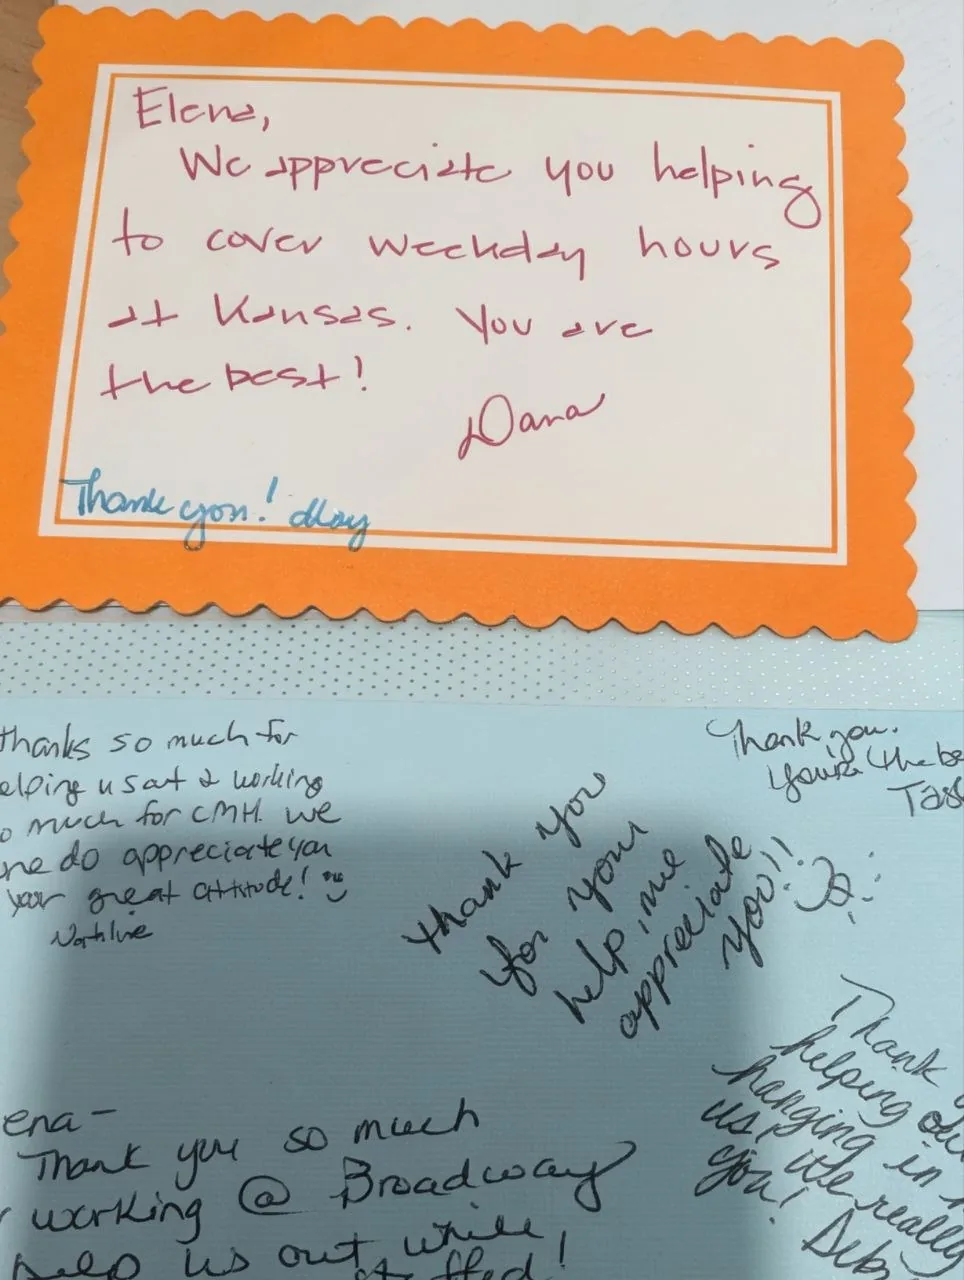 Elena,
We appreciate you helping
to cover weekday hours
at Kansas. You are
the best!
Dana
Thank you!
thanks so much for
elping us out & working
o much for CMH. we
do appreciate you
your great attitude!
Thank you.
You're the be
Thank you
for your
help, we
appreciate
you!!
ena-
Thank you so much
working @ Broadway
help us out while
Thank
helping out
hanging in
us, we really
you!
Deb